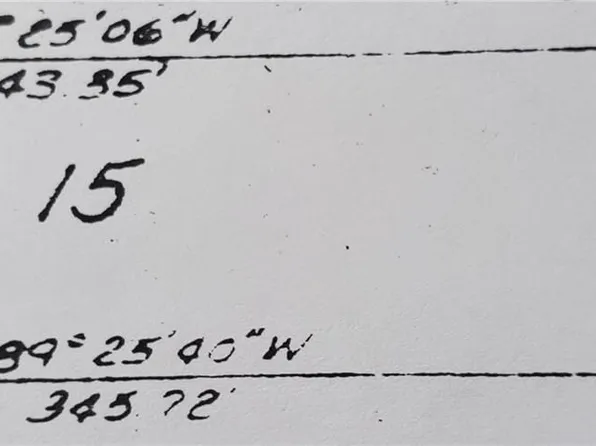 ° 25' 06" W
43.35'
15
89° 25' 40" W
345.72'